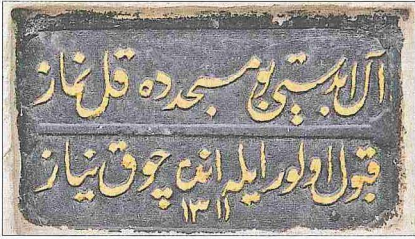 آل ابدستی بو مسجدده قل نماز
قبول اولور ایله انده چوق نیاز
۱۳۱۱